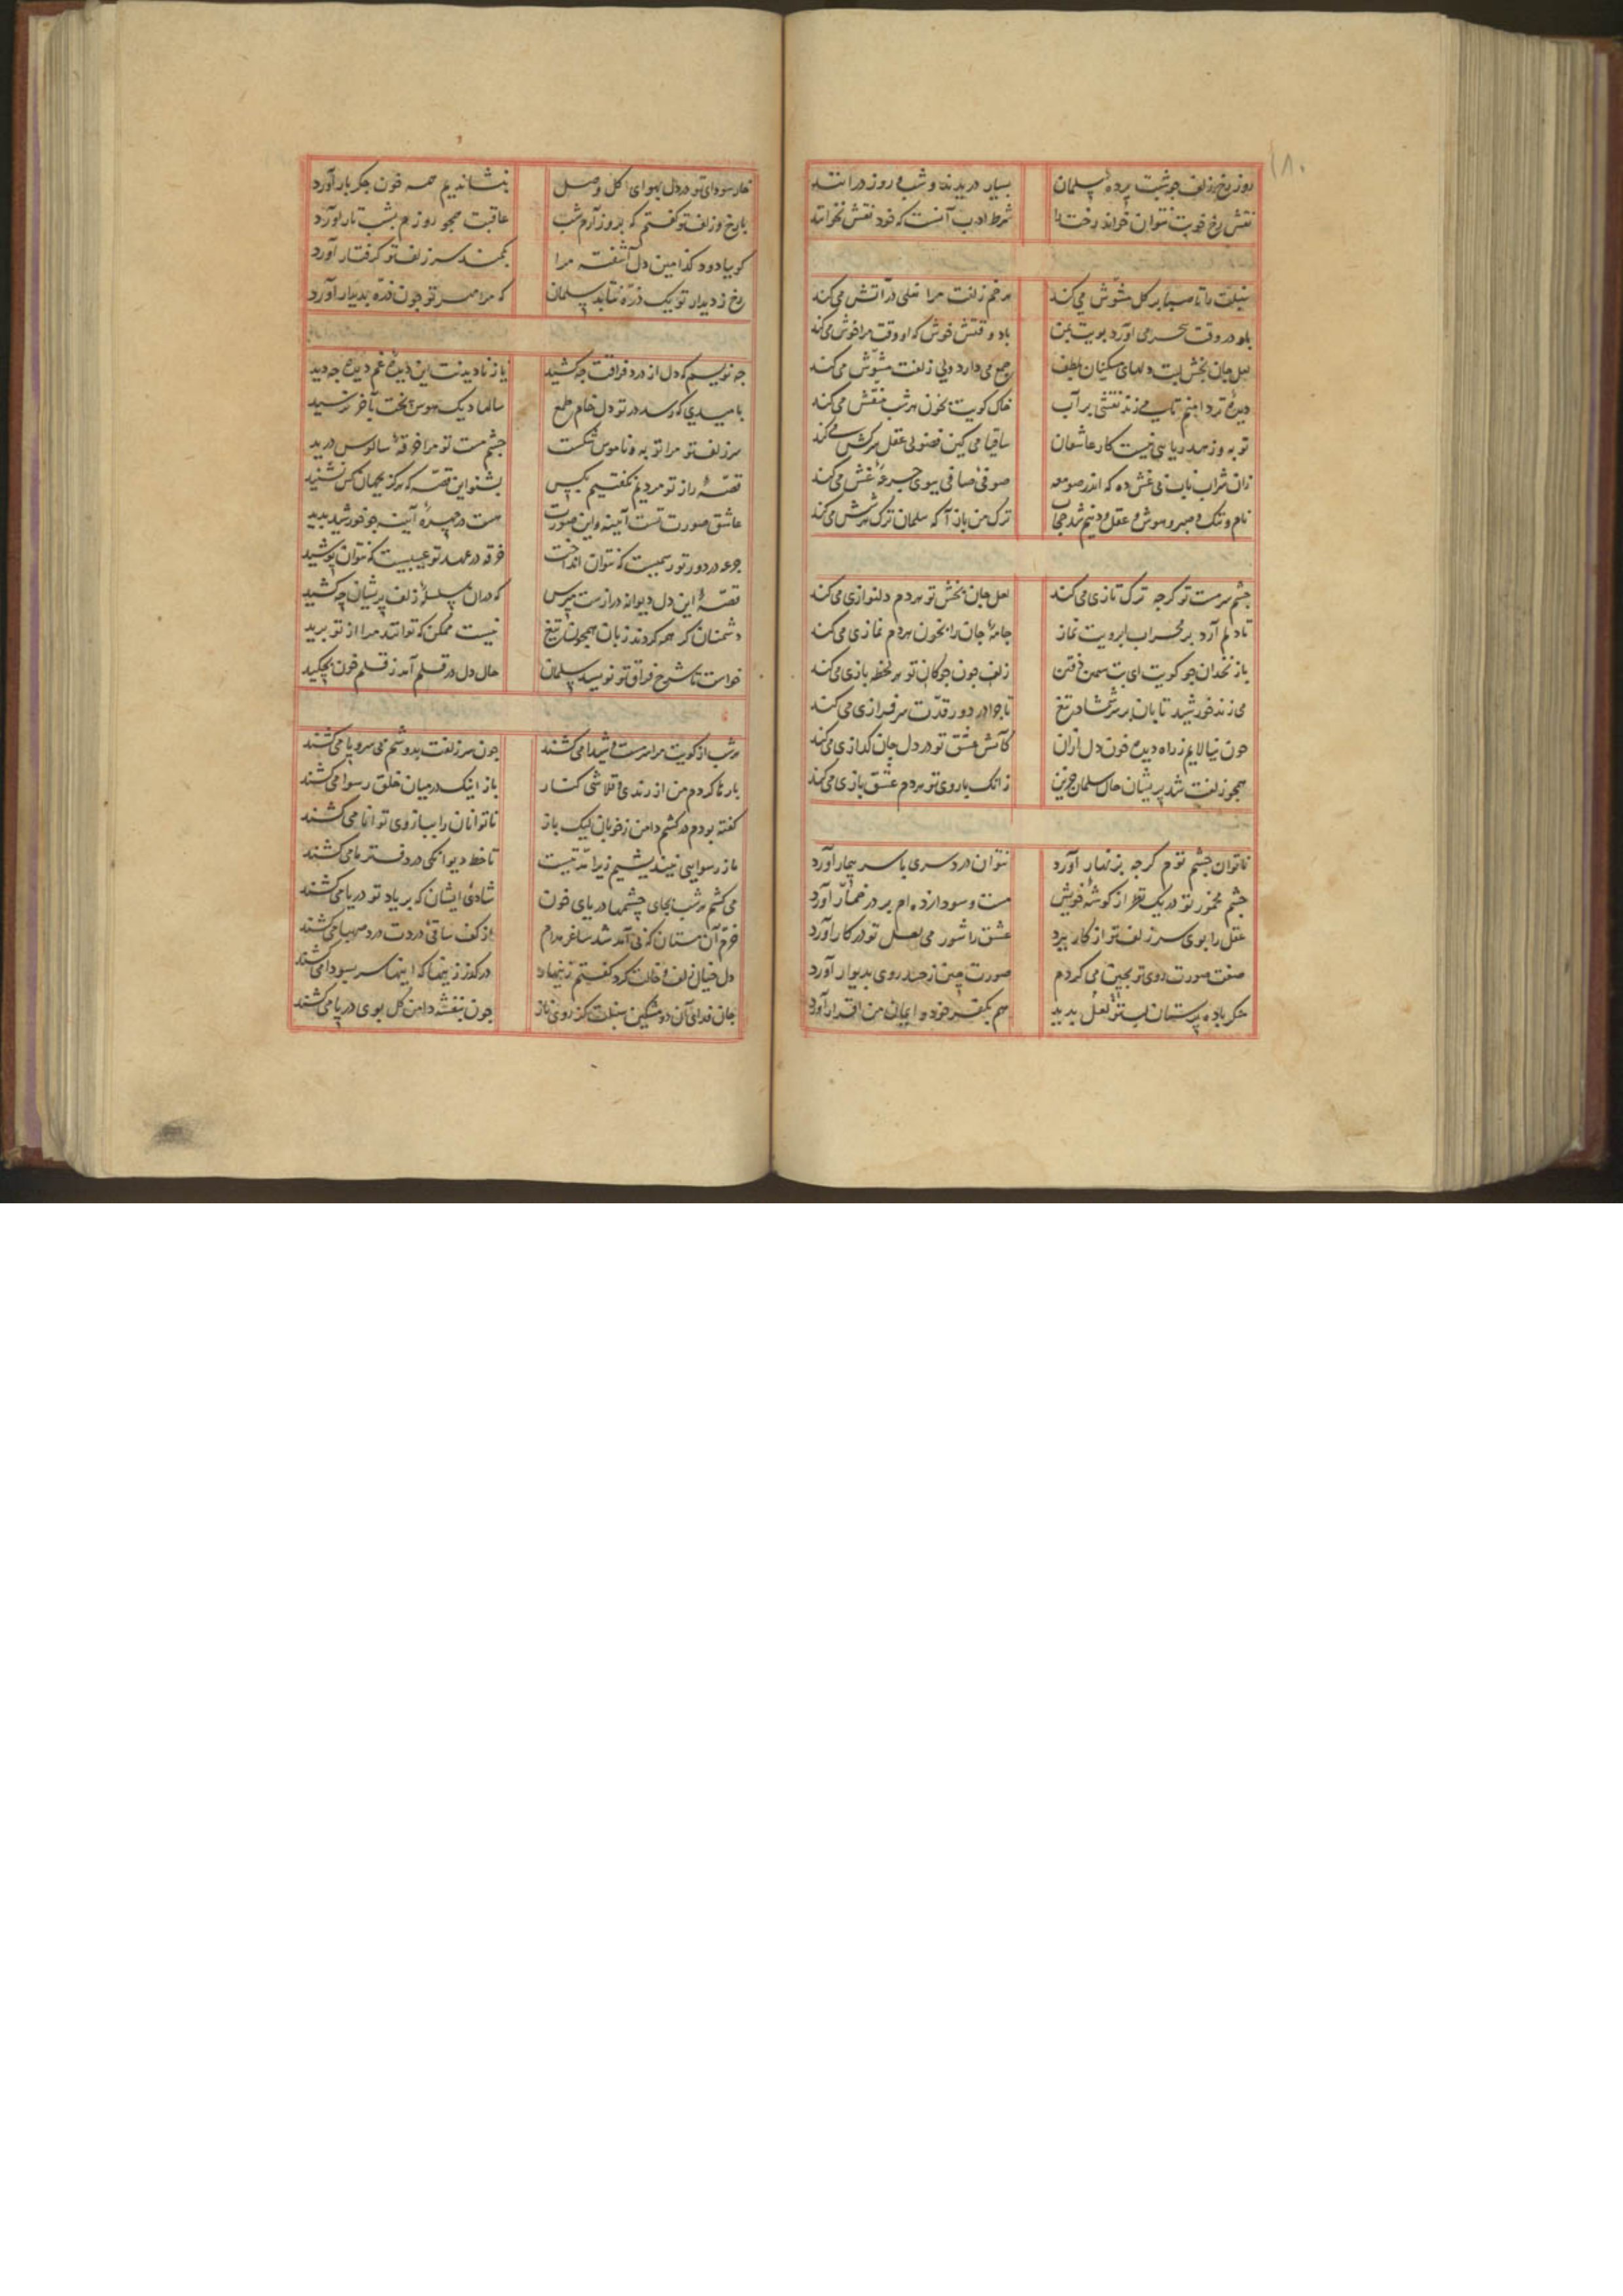 ۱۸۰
روز رخ زلف چو شبت پرده سلمان بسیار دریدند و شب و روز درانند
نقش رخ خوبت نتوان خواند رخت را شرط ادب آنست که خود نقش نخوانند
سنبلت را تا صبا بر گل مشوش می‌کند هر خم زلفت مرا نعلی در آتش می‌کند
باد در وقت سحر می آورد بویت بمن باد وقتش خوش که او وقت مرا خوش می‌کند
لعل جان بخش لبت دلهای مسکینان بلطف جمع می دارد ولی زلفت مشوش می‌کند
دیدهٔ تردامنم تا می زند نقشی بر آب خاک کویت بخون هر شب منقش می‌کند
توبه و زهد ریایی نیست کار عاشقان ساقیا می کین فضولی عقل سرکش می‌کند
زان شراب ناب بی غش ده که اندر صومعه صوفی صافی ببوی جرعهٔ غش می‌کند
نام و ننگ و صبر و هوش و عقل و دینم شد حجاب ترک من باز آ که سلمان ترک هر شش می‌کند
چشم سرمست تو گرچه ترک تازی می‌کند لعل جان بخش تو هر دم دلنوازی می‌کند
تا دلم آرد بر محراب ابرویت نماز جامهٔ جان را بخون هر دم نمازی می‌کند
با زنخدان چو گویت ای بت سیمین ذقن زلف چون چوگان تو هر لحظه بازی می‌کند
می زند خورشید تابان بر سر شمشاد تیغ تا چرا در دور قدت سرفرازی می‌کند
چون نپالایم ز راه دیده خون دل ازان کآتش عشق تو در دل جان گدازی می‌کند
همچو زلفت شد پریشان حال سلمان حزین زانک با روی تو هر دم عشق بازی می‌کند
ناتوان چشم توم گرچه بزنهار آورد نتوان دردسری با سر بیمار آورد
چشم مخمور تو در یک نظر از گوشهٔ خویش مست و سودازده ام بر در خمار آورد
عقل را بوی سر زلف تو از کار ببرد عشق را شور می لعل تو در کار آورد
صفت صورت روی تو بچین می کردم صورت چین ز حسد روی بدیوار آورد
مگر باده پرستان لب تو لعل بدید هم بکفر خود و ایمان من اقرار آورد
خار سودای تو در دل بهوای گل وصل بنشاندیم همه خون جگر بار آورد
با رخ و زلف تو گفتم که بروز آرم شب عاقبت هجر تو روزم بشب تار آورد
گو بیا دود کدامین دل آشفته مرا بکمند سر زلف تو گرفتار آورد
رخ ز دیدار تو یک ذره نتابد سلمان که مرا مهر تو چون ذره بدیدار آورد
چه نویسم که دل از درد فراقت چه کشید یا ز نادیدنت این دیدهٔ غم دیده چه دید
بامیدی که رسد در تو دل خام طمع سالها دیک هوس پخت و بآخر نرسید
سر زلف تو مرا توبه و ناموس شکست چشم مست تو مرا خرقهٔ سالوس درید
قصهٔ راز تو مردیم نگفتیم بکس بشنو این قصه که هرگز بجهان کس نشنید
عاشق صورت تست آینه و این صورت هست در چهرهٔ آینه چو خورشید پدید
جرعه در دور تو رسمیست که نتوان انداخت خرقه در عهد تو عیبیست که نتوان پوشید
قصهٔ این دل دیوانه درازست مپرس که دران سلسلهٔ زلف پریشان چه کشید
دشمنان گر همه کردند زبان همچون تیغ نیست ممکن که توانند مرا از تو برید
خواست تا شرح فراق تو نویسد سلمان حال دل در قلم آمد ز قلم خون بچکید
هر شب از کویت مرا سرمست و شیدا می‌کشند چون سر زلفت بدوشم بی سر و پا می‌کشند
بارها کردم من از رندی و قلاشی کنار باز اینک در میان خلق رسوا می‌کشند
گفته بودم در کشم دامن ز خوبان لیک باز ناتوانان را ببازوی توانا می‌کشند
ما ز رسوایی نیندیشیم زیرا مدتیست تا خط دیوانگی در دفتر ما می‌کشند
می کشم هر شب بجای چشمها دریای خون شادی ایشان که بر یاد تو دریا می‌کشند
خرم آن مستان که بی آمد شد ساغر مدام از کف ساقی دردت درد صهبا می‌کشند
دل خیال زلف و خالت کرد گفتم زینهار در گذر زینها که اینها سر بسودا می‌کشند
جان فدای آن دو مشکین سنبلت کز روی ناز چون بنفشه دامن گل بوی در پا می‌کشند